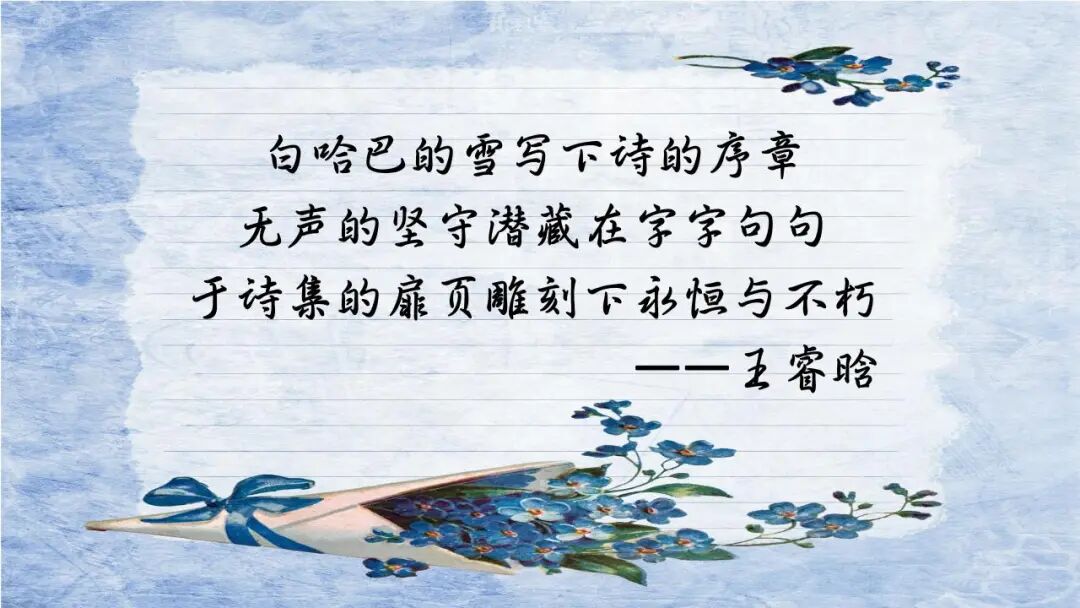 白哈巴的雪写下诗的序章
无声的坚守潜藏在字字句句
于诗集的扉页雕刻下永恒与不朽
——王睿晗